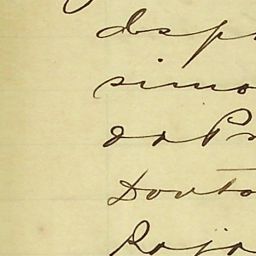 desp
simo
do Pr
Douto
Rojo